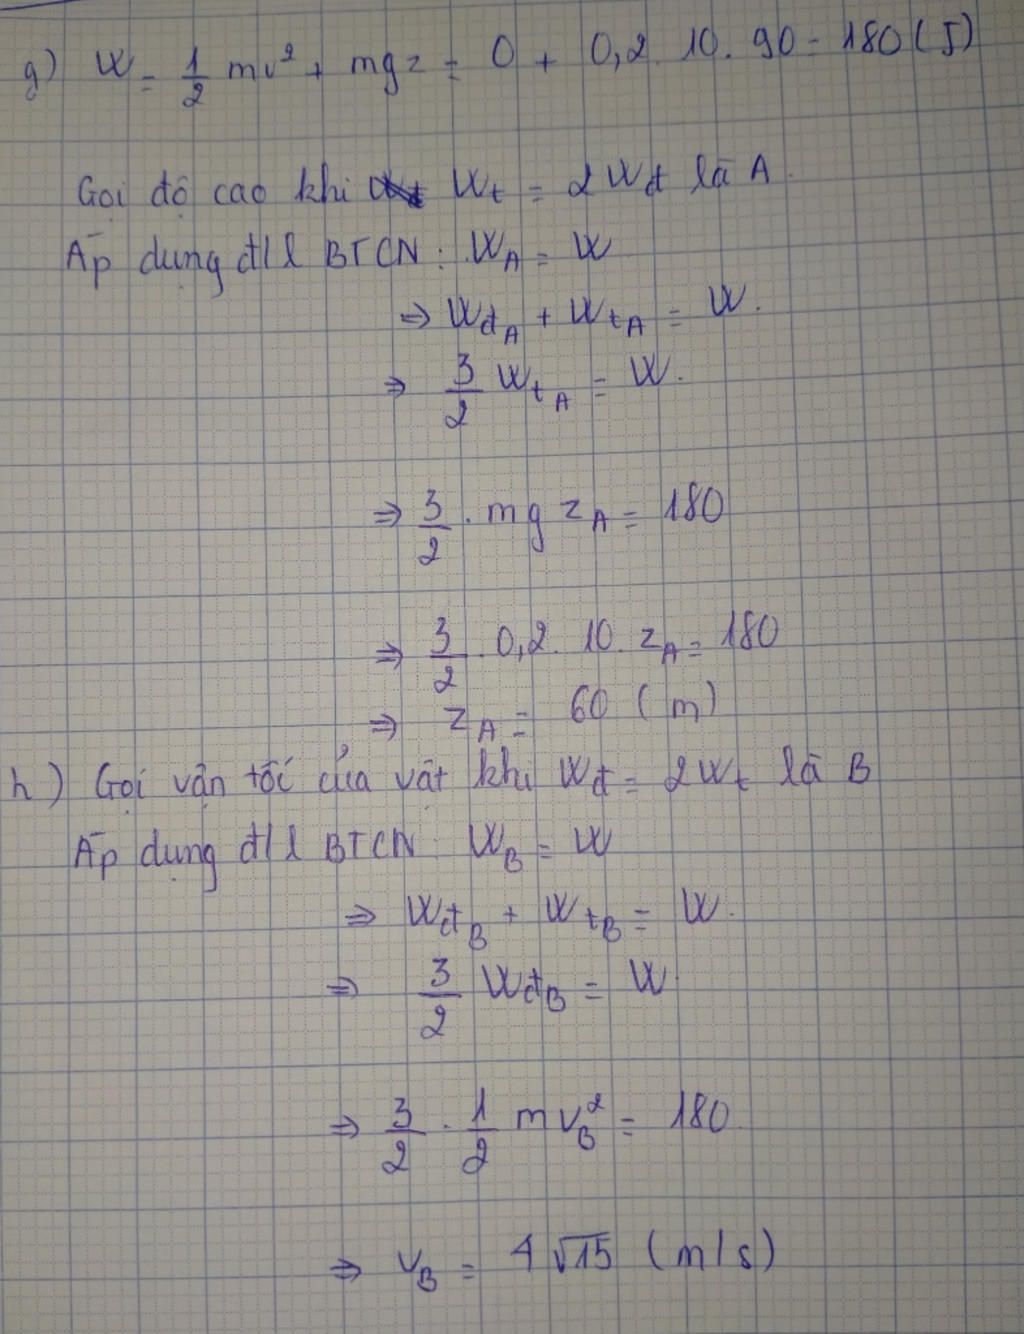 g) W = 1/2 mv² + mgz = 0 + 0,2. 10. 90 = 180 (J)
Gọi độ cao khi Wt = 2Wđ là A.
Áp dụng đ/l BTCN: W_A = W
⇒ Wđ_A + Wt_A = W.
⇒ 3/2 Wt_A = W.
⇒ 3/2 . mg z_A = 180
⇒ 3/2 . 0,2. 10. z_A = 180
⇒ z_A = 60 (m)
h) Gọi vận tốc của vật khi Wđ = 2Wt là B
Áp dụng đ/l BTCN: W_B = W
⇒ Wđ_B + Wt_B = W.
⇒ 3/2 Wđ_B = W.
⇒ 3/2 . 1/2 m v_B² = 180.
⇒ v_B = 4√15 (m/s)